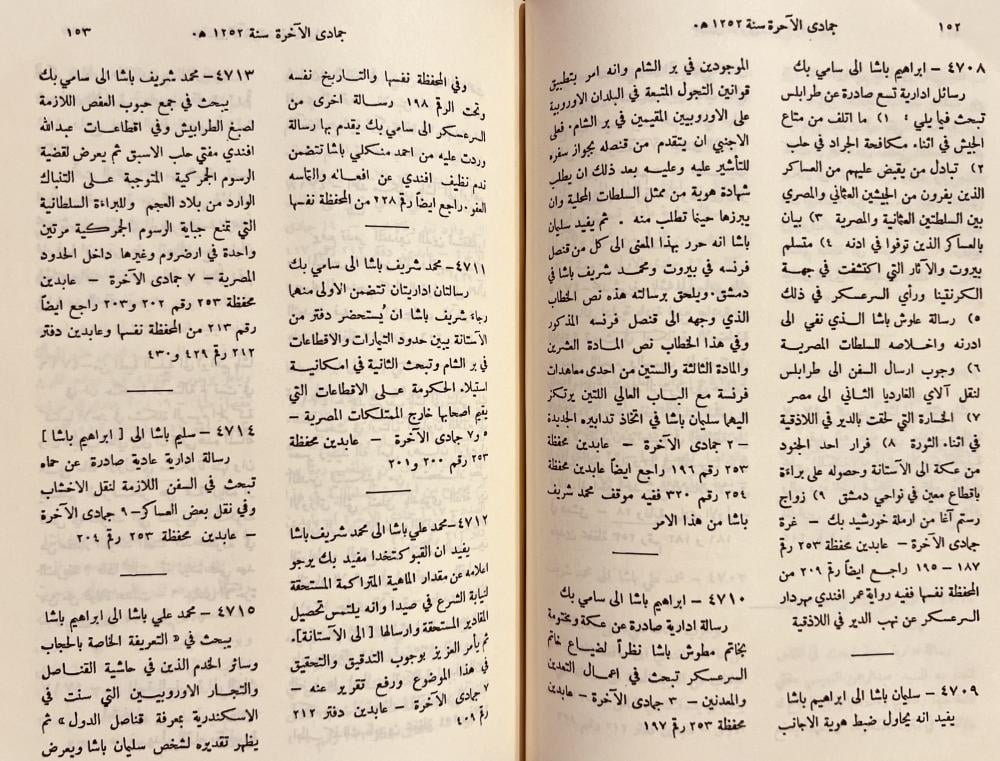 ١٥٢
جمادى الآخرة سنة ١٢٥٢ ه‍.
٤٧٠٨ – ابراهيم باشا الى سامي بك
رسائل ادارية تسع صادرة عن طرابلس
تبحث فيما يلي : ١) ما اتلف من متاع
الجيش في اثناء مكافحة الجراد في حلب
٢) تبادل من يقبض عليهم من العساكر
الذين يفرون من الجيشين العثماني والمصري
بين السلطتين العثمانية والمصرية ٣) بيان
بالعساكر الذين توفوا في ادنه ٤) متسلم
بيروت والآثار التي اكتشفت في جهة
الكرنتينا ورأي السرعسكر في ذلك
٥) رسالة عاوش باشا الذي نفي الى
ادرنه واخلاصه للسلطات المصرية
٦) وجوب ارسال السفن الى طرابلس
لنقل آلاي الغارديا الثاني الى مصر
٧) الخسارة التي لحقت بالدير في اللاذقية
في اثناء الثورة ٨) فرار احد الجنود
من عكة الى الآستانة وحصوله على براءة
باقطاع معين في نواحي دمشق ٩) زواج
رستم آغا من ارملة خورشيد بك – غرة
جمادى الآخرة – عابدين محفظة ٢٥٣ رقم
١٨٧ – ١٩٥ راجع ايضاً رقم ٢٠٩ من
المحفظة نفسها ففيه رواية عمر افندي مهردار
السرعسكر عن نهب الدير في اللاذقية
٤٧٠٩ – سليمان باشا الى ابراهيم باشا
يفيد انه يحاول ضبط هوية الاجانب
الموجودين في بر الشام وانه امر بتطبيق
قوانين التجول المتبعة في البلدان الاوروبية
على الاوروبيين المقيمين في بر الشام. فعلى
الاجنبي ان يتقدم من قنصله بجواز سفره
للتأشير عليه وعليه بعد ذلك ان يطلب
شهادة هوية من ممثل السلطات المحلية وان
يبرزها حينما تطلب منه . ثم يفيد سليمان
باشا انه حرر بهذا المعنى الى كل من قنصل
فرنسه في بيروت ومحمد شريف باشا في
دمشق. ويلحق برسالته هذه نص الخطاب
الذي وجهه الى قنصل فرنسه المذكور
وفي هذا الخطاب نص المادة العشرين
والمادة الثالثة والستين من احدى معاهدات
فرنسة مع الباب العالي اللتين يرتكز
اليهما سليمان باشا في اتخاذ تدابيره الجديدة
– ٢ جمادى الآخرة – عابدين محفظة
٢٥٣ رقم ١٩٦ راجع ايضاً عابدين محفظة
٢٥٤ رقم ٣٢٠ ففيه موقف محمد شريف
باشا من هذا الامر
٤٧١٠ – ابراهيم باشا الى سامي بك
رسالة ادارية صادرة عن عكة ومختومة
بخاتم مطوش باشا نظراً لضياع خاتم
السرعسكر تبحث في اعمال التعدين
والمعدنين – ٣ جمادى الآخرة – عابدين
محفظة ٢٥٣ رقم ١٩٧
جمادى الآخرة سنة ١٢٥٢ ه‍.
١٥٣
وفي المحفظة نفسها والتاريخ نفسه
وتحت الرقم ١٩٨ رسالة اخرى من
السرعسكر الى سامي بك يقدم بها رسالة
وردت عليه من احمد منكلي باشا تتضمن
ندم نظيف افندي عن افعاله والتماسه
العفو. راجع ايضاً رقم ٢٢٨ من المحفظة نفسها
٤٧١١ – محمد شريف باشا الى سامي بك
رسالتان اداريتان تتضمن الاولى منهما
رجاء شريف باشا ان يُستحضر دفتر من
الآستانة يبين حدود التيمارات والاقطاعات
في بر الشام وتبحث الثانية في امكانية
استيلاء الحكومة على الاقطاعات التي
يقيم اصحابها خارج الممتلكات المصرية –
٥ و٧ جمادى الآخرة – عابدين محفظة
٢٥٣ رقم ٢٠٠ و٢٠١
٤٧١٢ – محمد علي باشا الى محمد شريف باشا
يفيد ان القبو كتخدا مفيد بك يرجو
اعلامه عن مقدار الماهية المتراكمة المستحقة
لنيابة الشرع في صيدا وانه يلتمس تحصيل
المقادير المستحقة وارسالها [ الى الآستانة].
ثم يأمر العزيز بوجوب التدقيق والتحقيق
في هذا الموضوع ورفع تقرير عنه –
٧ جمادى الآخرة – عابدين دفتر ٢١٢
رقم ٤٠٩
٤٧١٣ – محمد شريف باشا الى سامي بك
يبحث في جمع حبوب العفص اللازمة
لصبغ الطرابيش وفي اقطاعات عبدالله
افندي مفتي حلب الاسبق ثم يعرض لقضية
الرسوم الجمركية المتوجبة على التنباك
الوارد من بلاد العجم وللبراءة السلطانية
التي تمنع جباية الرسوم الجمركية مرتين
واحدة في ارضروم وغيرها داخل الحدود
المصرية – ٧ جمادى الآخرة – عابدين
محفظة ٢٥٣ رقم ٢٠٢ و٢٠٣ راجع ايضاً
رقم ٢١٣ من المحفظة نفسها وعابدين دفتر
٢١٢ رقم ٤٢٩ و٤٣٠
٤٧١٤ – سليم باشا الى [ ابراهيم باشا ]
رسالة ادارية عادية صادرة عن حماه
تبحث في السفن اللازمة لنقل الاخشاب
وفي نقل بعض العساكر – ٩ جمادى الآخرة
– عابدين محفظة ٢٥٣ رقم ٢٠٤
٤٧١٥ – محمد علي باشا الى ابراهيم باشا
يبحث في « التعريفة الخاصة بالحجاب
وسائر الخدم الذين في حاشية القناصل
والتجار الاوروبيين التي سنت في
الاسكندرية بمعرفة قناصل الدول » ثم
يظهر تقديره لشخص سليمان باشا ويعرض